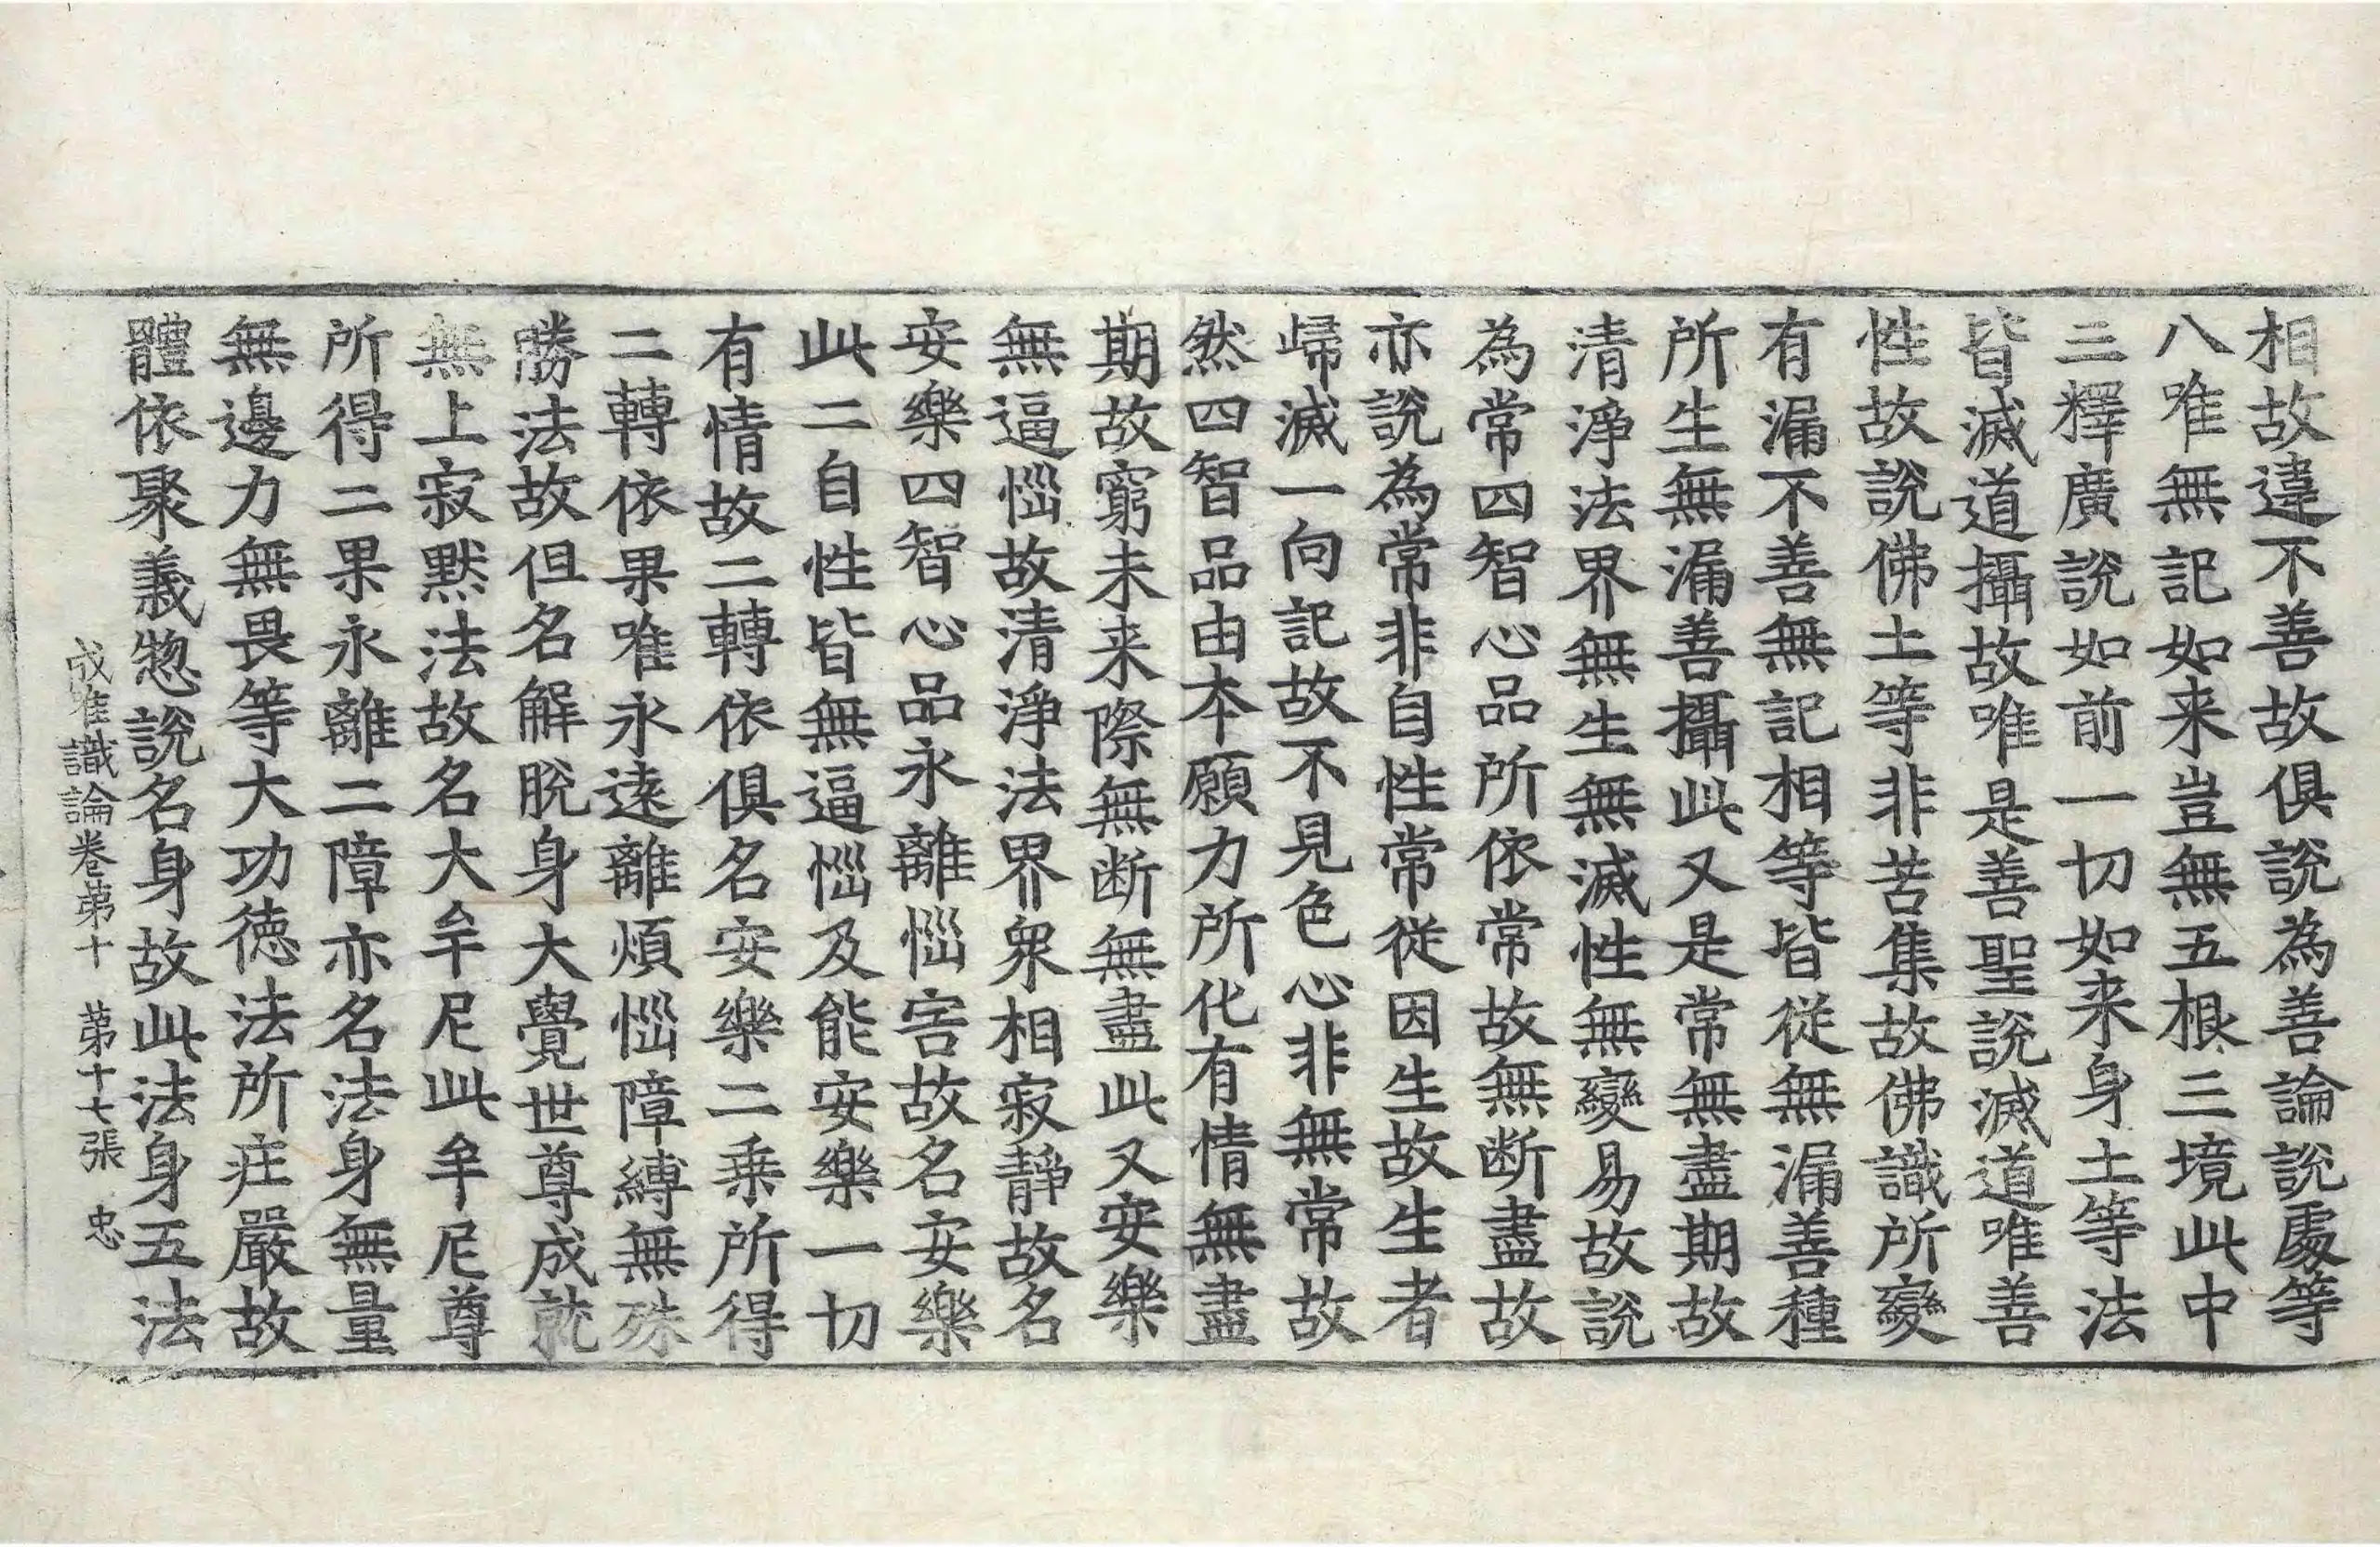 相故違不善故俱說為善論說處等
八唯無記如来豈無五根三境此中
三釋廣說如前一切如来身土等法
皆滅道攝故唯是善聖說滅道唯善
性故說佛土等非苦集故佛識所變
有漏不善無記相等皆從無漏善種
所生無漏善攝此又是常無盡期故
清淨法界無生無滅性無變易故說
為常四智心品所依常故無断盡故
亦說為常非自性常從因生故生者
歸滅一向記故不見色心非無常故
然四智品由本願力所化有情無盡
期故窮未来際無断無盡此又安樂
無逼惱故清淨法界衆相寂靜故名
安樂四智心品永離惱害故名安樂
此二自性皆無逼惱及能安樂一切
有情故二轉依俱名安樂二乗所得
二轉依果唯永遠離煩惱障縛無殊
勝法故但名解脫身大覺世尊成就
無上寂黙法故名大牟尼此牟尼尊
所得二果永離二障亦名法身無量
無邊力無畏等大功徳法所庄嚴故
體依聚義惣說名身故此法身五法
成唯識論卷第十 第十七張 忠